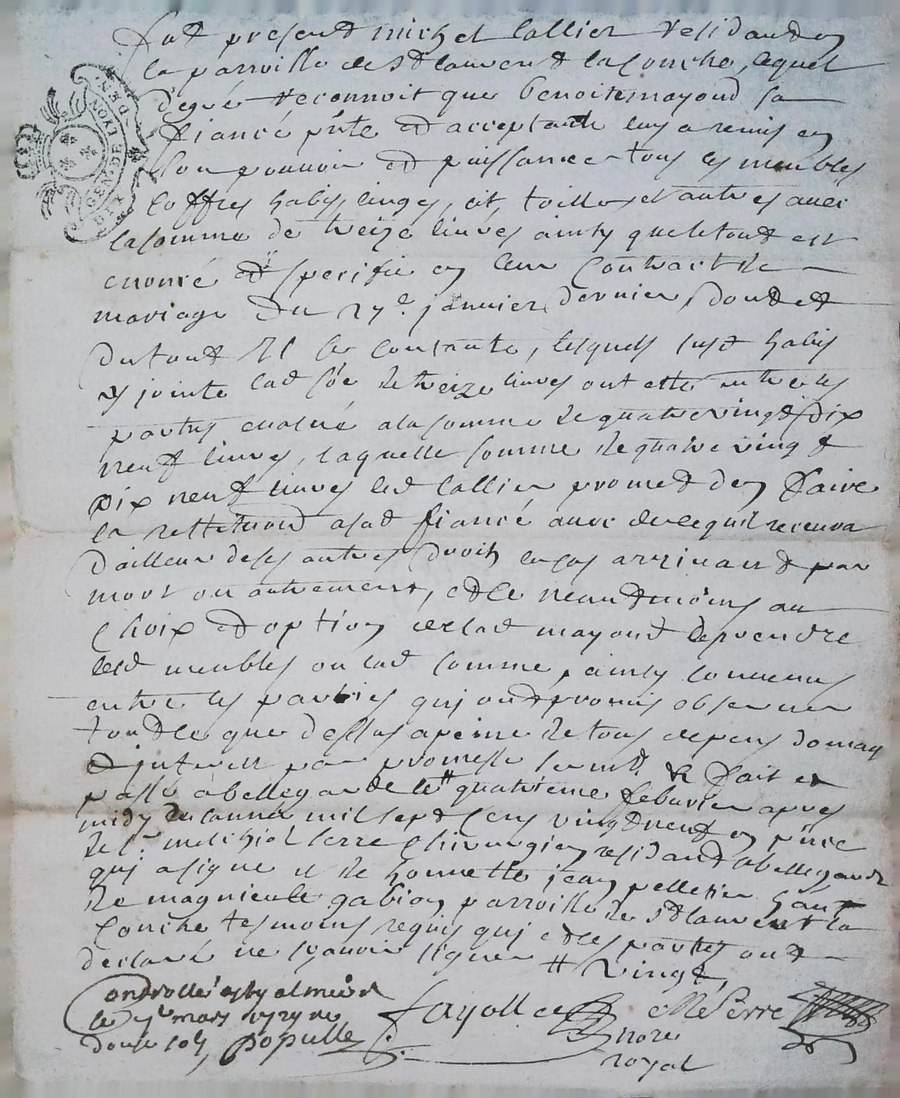 fut present michel Callier residand en
la parroisse de St laurent la Conche, lequel
de gré reconnoit que benoite mayoud sa
fiancé pnte et acceptante luy a remis en
son pouvoir et puissance tous les meubles
coffres habis linges, lit, toilles et autres avec
la somme de treize livres ainsy que le tout est
enoncé et specifié en leur Contract de
mariage du 27e janvier dernier, dont et
du tout il se contante, lesquels susd habis
y jointe lad sôe de treize livres ont esté entre les
parties evalué a la somme de quatre vingt dix
neuf livres, laquelle somme de quatre vingt
dix neuf livres led Callier promet den faire
la restitution a sad fiancé avec de ce quil recevra
dailleur de ses autres droits en cas arrivant par
mort ou autrement, et ce neantmoins au
Choix et option de lad mayoud de prendre
lesd meubles ou lad somme, ainsy convenus
entre les parties qui ont promis observer
tout ce que dessus a peine de tous depens domag
et interest par promesse sermt & fait et
passé a bellegarde le quatrieme febvrier apres
midy de lannée mil sept Cens vingt neuf en pnce
de sr melchiol serre Chirurgien residant a bellegarde
qui a signé et de honnette jean pelletier
de magnieu le gabion parroisse de St laurent la
Conche tesmoins requis qui et les parties ont
declaré ne scavoir signer
vingt
Controllé a
le mars 1729 Re
douze sols
populle
fayolle
MSerre
nore
royal
GEN. DE LYON
DEN